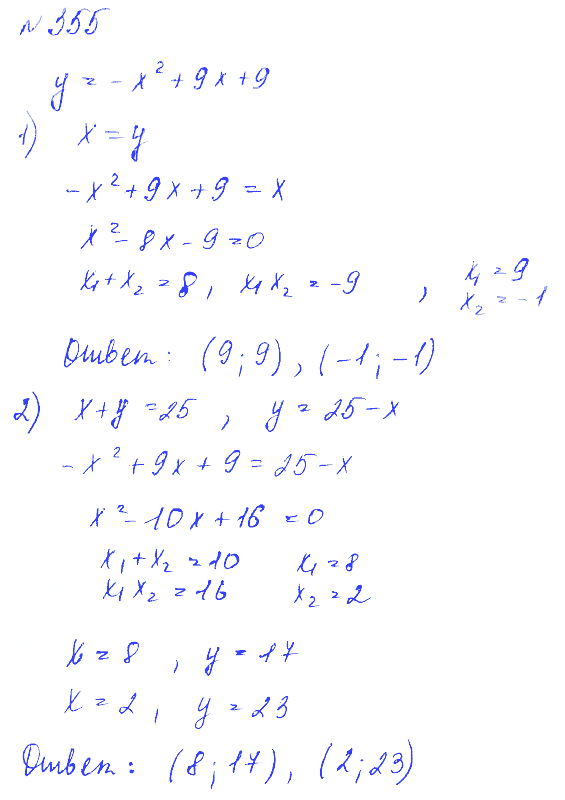 №355
y = -x² + 9x + 9
1) x = y
-x² + 9x + 9 = x
x² - 8x - 9 = 0
x₁ + x₂ = 8, x₁ x₂ = -9, x₁ = 9
x₂ = -1
Ответ: (9; 9), (-1; -1)
2) x + y = 25, y = 25 - x
-x² + 9x + 9 = 25 - x
x² - 10x + 16 = 0
x₁ + x₂ = 10 x₁ = 8
x₁ x₂ = 16 x₂ = 2
x = 8, y = 17
x = 2, y = 23
Ответ: (8; 17), (2; 23)